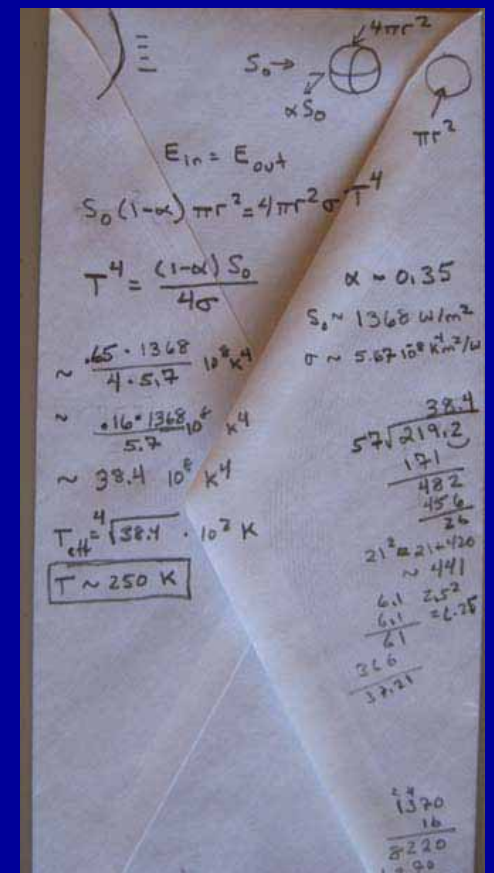 4πr²
S₀→
αS₀
πr²
E in = E out
S₀(1-α)πr²=4πr²σT⁴
T⁴ = (1-α)S₀ / 4σ
α ~ 0.35
S₀ ~ 1368 W/m²
σ ~ 5.67 10⁸ K⁻⁴m²/W
~ .65 · 1368 / 4 · 5.7 10⁸ K⁴
~ .16 · 1368 / 5.7 10⁸ K⁴
~ 38.4 10⁸ K⁴
T eff = ⁴√38.4 · 10² K
T ~ 250 K
38.4
57√219.2
171
482
456
26
21² = 21+420
~ 441
6.1 2.5²
6.1 = 6.25
61
366
37.21
1370
16
8220